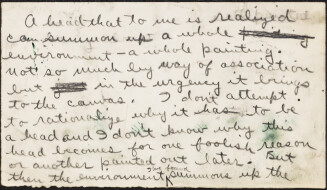 A head that to me is realized
can summon up a whole
environment — a whole painting.
Not so much by way of association
but in the urgency it brings
to the canvas. I don't attempt
to rationalize why it has to be
a head and I don't know why this
head becomes for one foolish reason
or another painted out later. But
then the environment summons up the